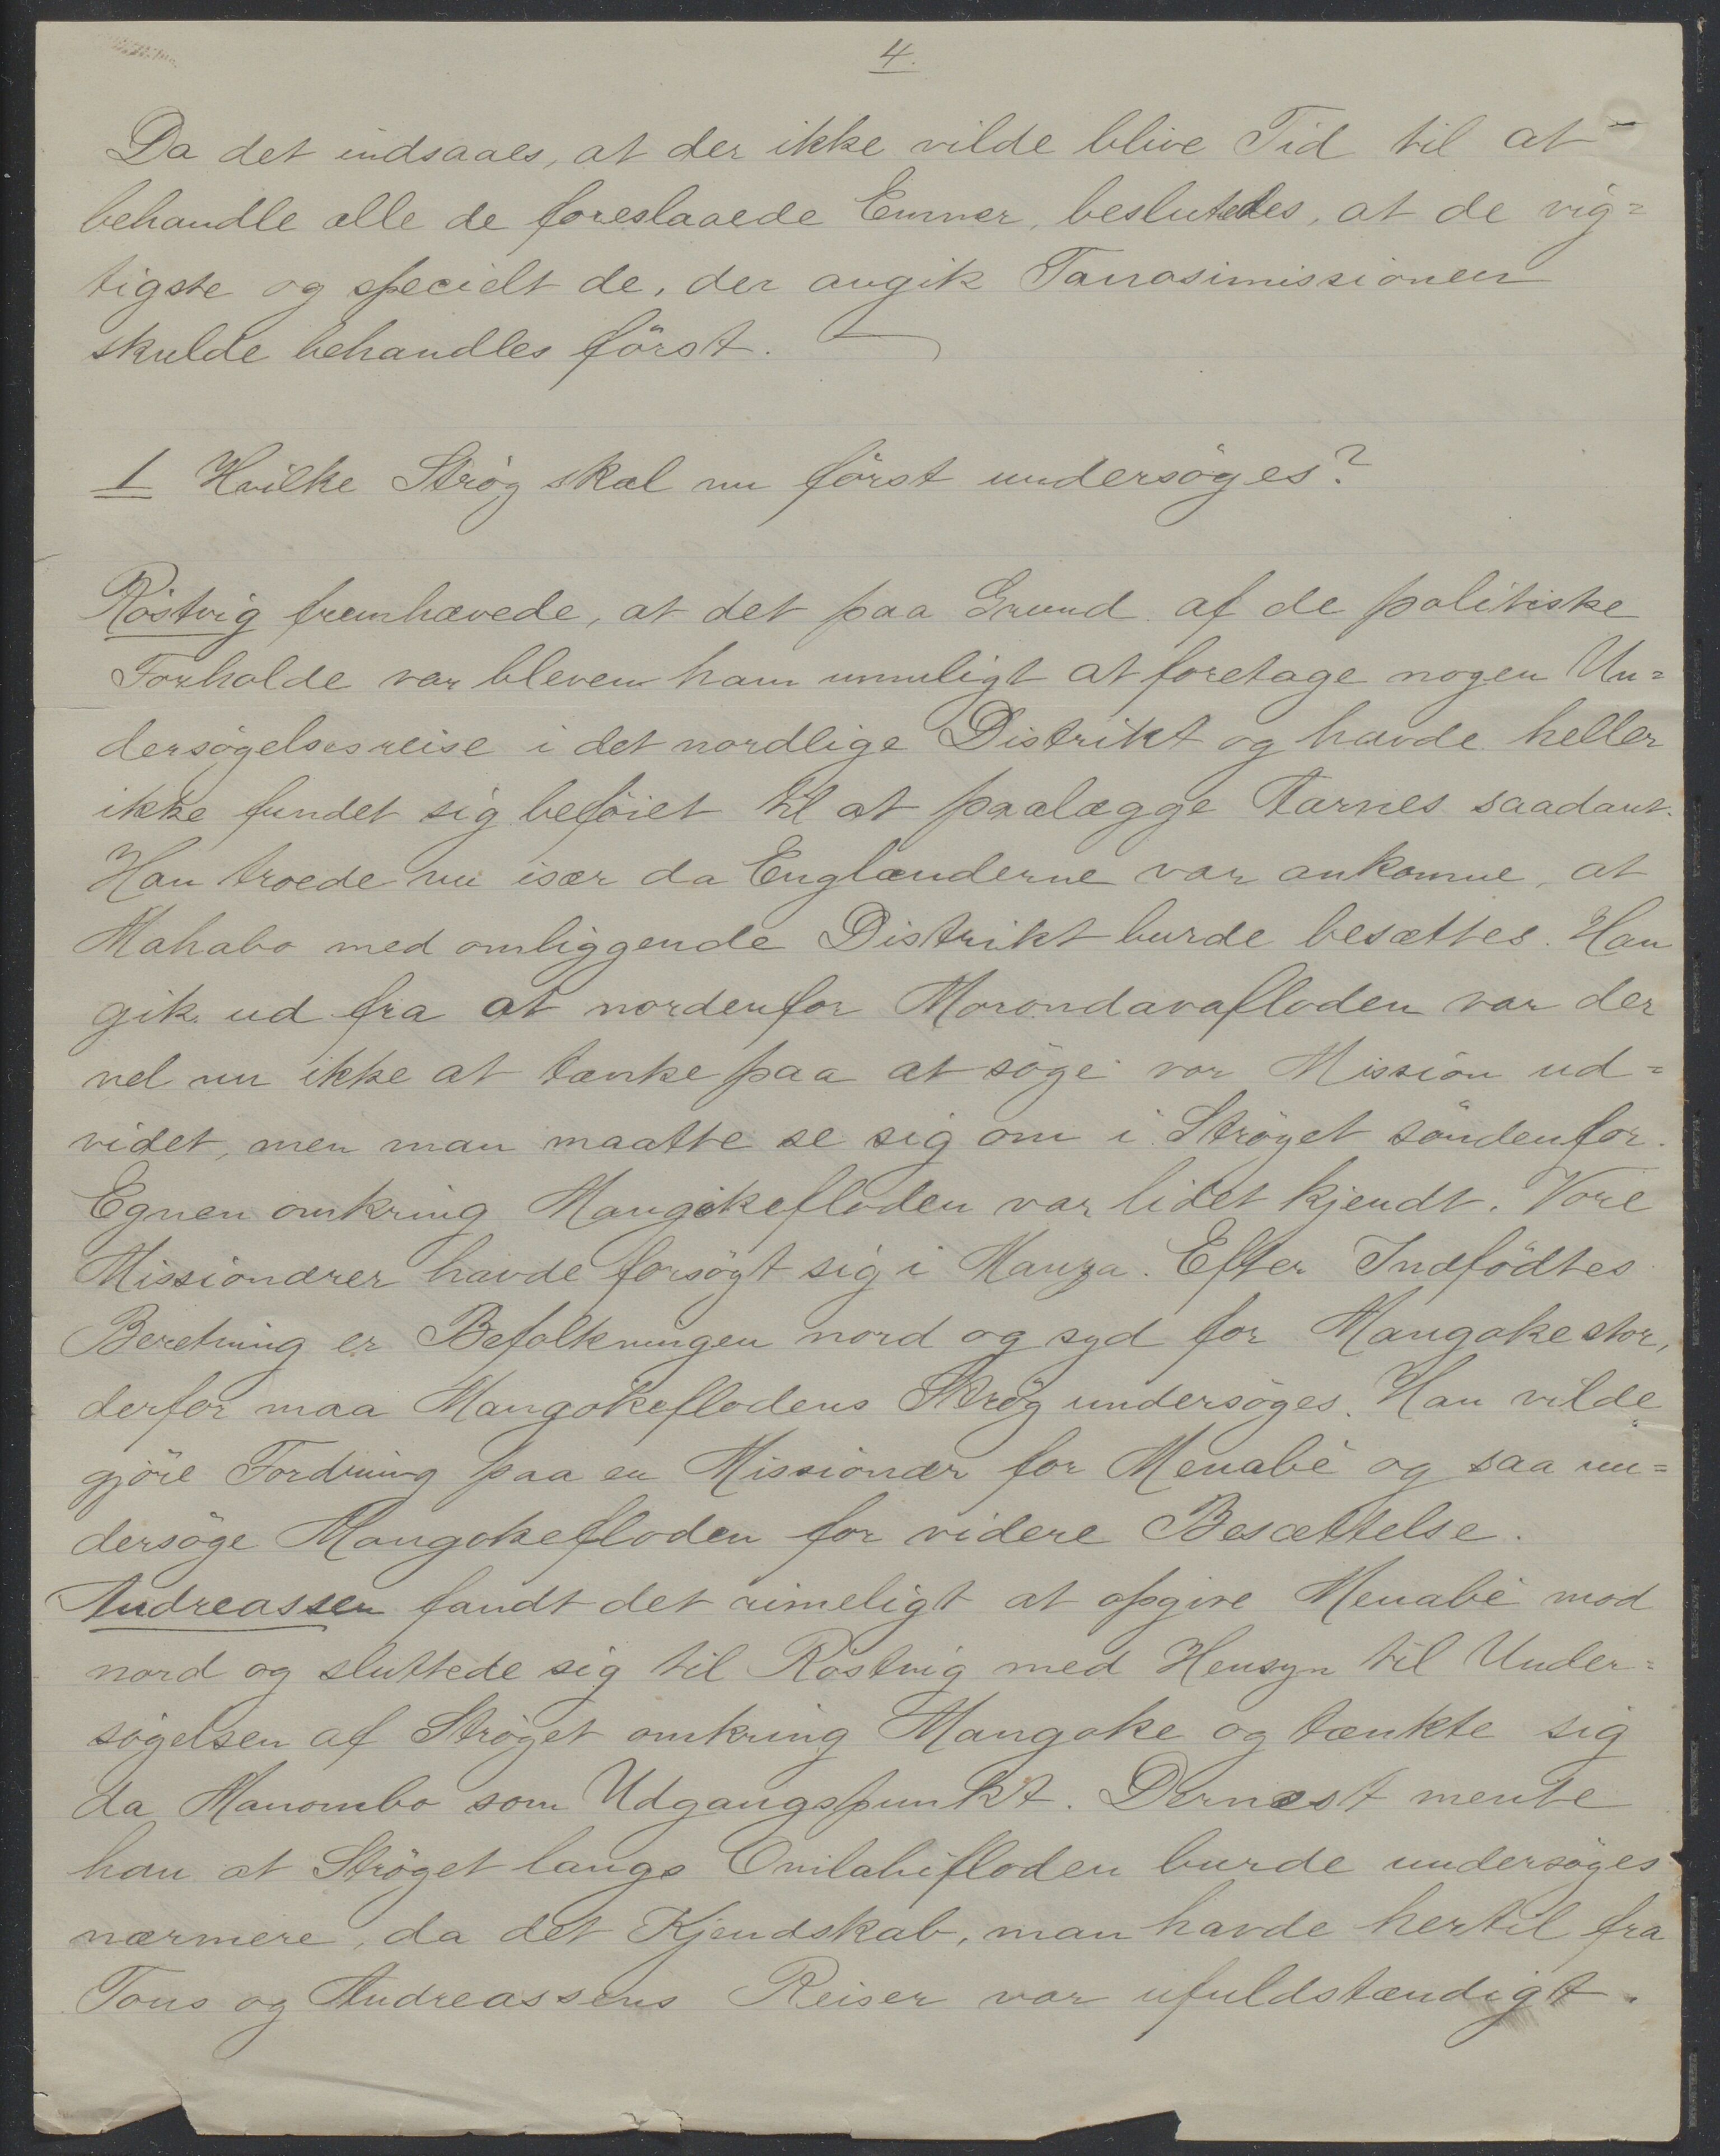 4.
Da det indsaaes, at der ikke vilde blive Tid til at
behandle alle de foreslaaede Emner, besluttedes, at de vig=
tigste og specielt de, der angik Tanosimissionen
skulde behandles först.
1 Hvilke Strøg skal nu först undersöges?
Röstvig fremhævede, at det paa Grund af de politiske
Forholde var bleven ham umuligt at foretage nogen Un=
dersøgelsesreise i det nordlige Distrikt og havde heller
ikke fundet sig beföiet til at paalægge Aarnes saadant.
Han troede nu især da Englænderne var ankomne, at
Mahabo med omliggende Distrikt burde besættes. Han
gik ud fra at nordenfor Morondavafloden var der
vel nu ikke at tænke paa at söge vor Mission ud=
videt, men man maatte se sig om i Ströget söndenfor.
Egnen omkring Mangokefloden var lidet kjendt. Vore
Missionærer havde forsögt sig i Manza. Efter Indfödtes
Beretning er Befolkningen nord og syd for Mangoke stor,
derfor maa Mangokeflodens Strög undersöges. Han vilde
gjöre Fordring paa en Missionær for Menabé og saa un=
dersöge Mangokefloden for videre Besættelse.
Andreassen fandt det rimeligt at opgive Menabé mod
nord og sluttede sig til Röstvig med Hensyn til Under=
sögelsen af Ströget omkring Mangoke og tænkte sig
da Manombo som Udgangspunkt. Dernæst mente
han at Ströget langs Onilahifloden burde undersöges
nærmere, da det Kjendskab, man havde hertil fra
Tous og Andreassens Reiser var ufuldstændigt.